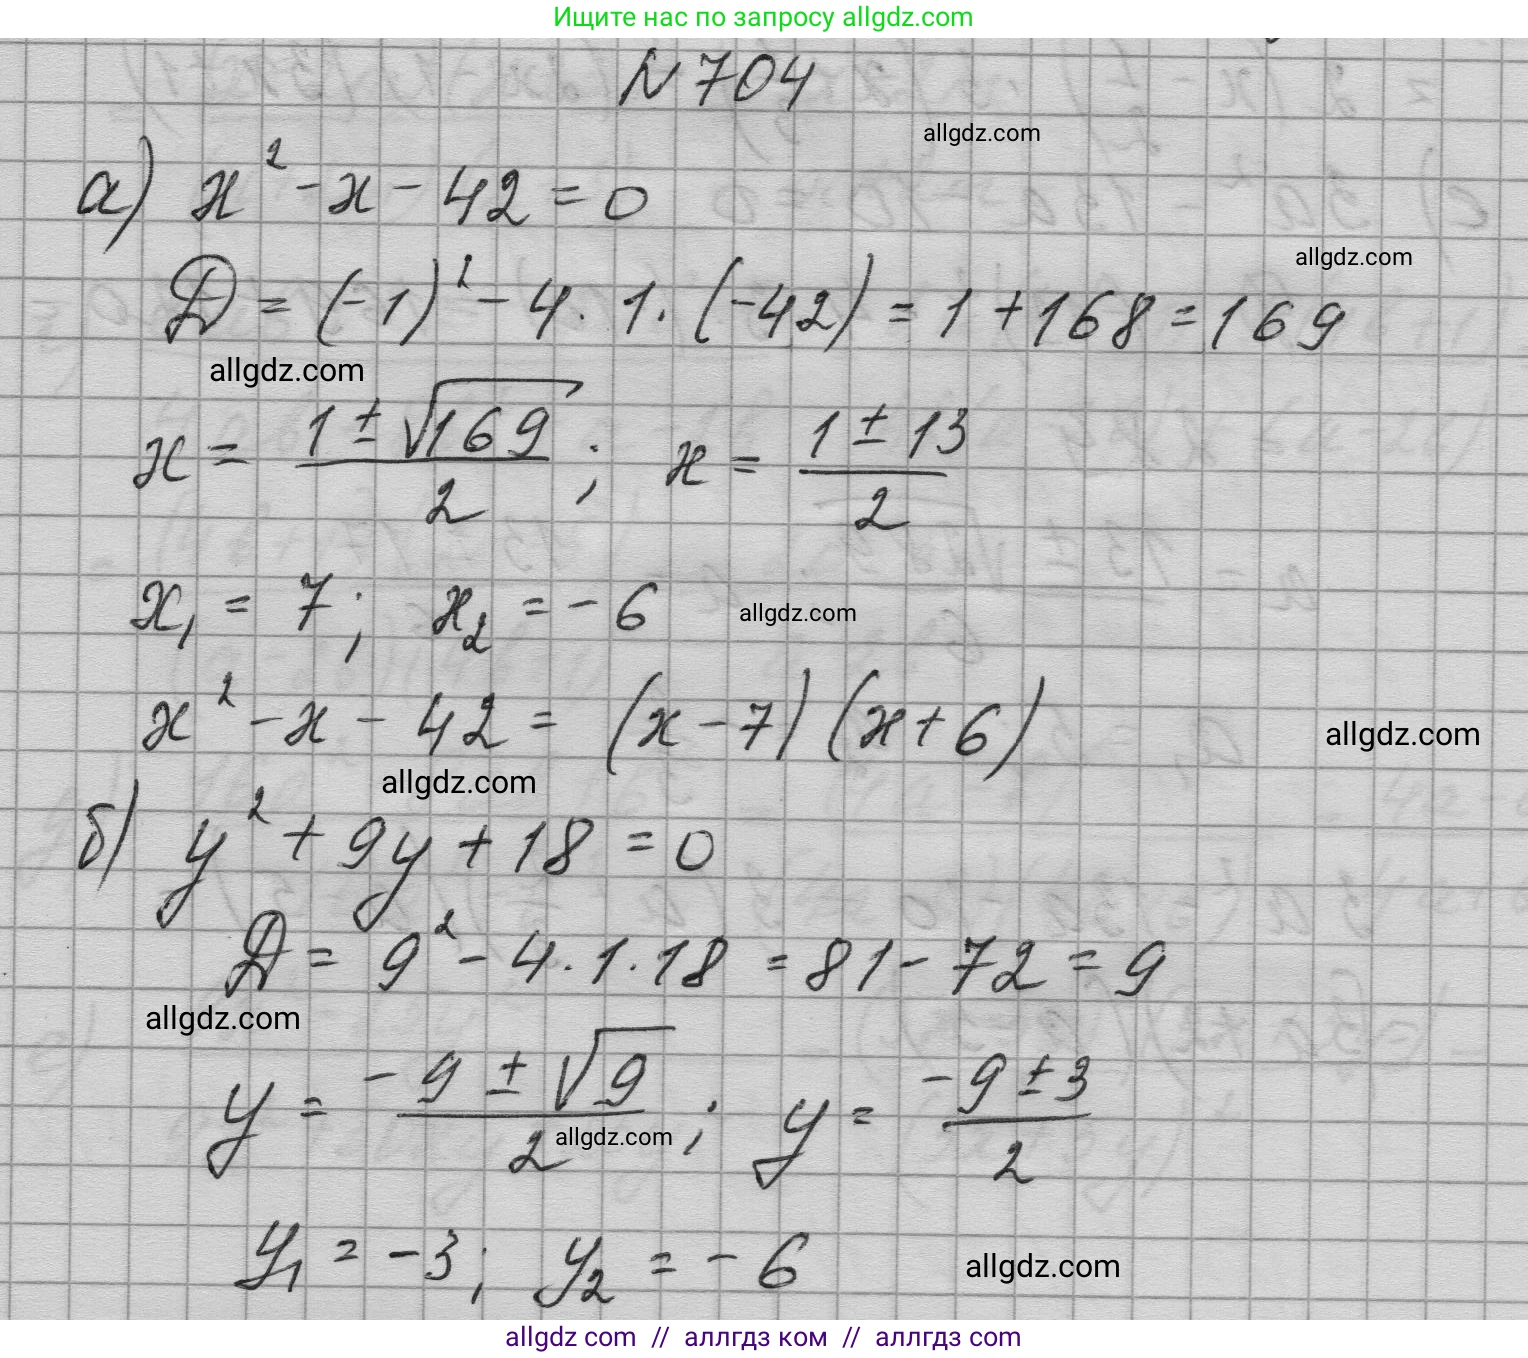 Ищите нас по запросу allgdz.com
N 704
allgdz.com
а) x² - x - 42 = 0
allgdz.com
D = (-1)² - 4 · 1 · (-42) = 1 + 168 = 169
allgdz.com
x = (1 ± √169) / 2 ; x = (1 ± 13) / 2
x₁ = 7; x₂ = - 6
allgdz.com
x² - x - 42 = (x - 7) (x + 6)
allgdz.com
allgdz.com
б) y² + 9y + 18 = 0
D = 9² - 4 · 1 · 18 = 81 - 72 = 9
allgdz.com
y = (-9 ± √9) / 2 ; y = (-9 ± 3) / 2
allgdz.com
y₁ = -3; y₂ = - 6
allgdz.com
allgdz com // аллгдз ком // аллгдз com